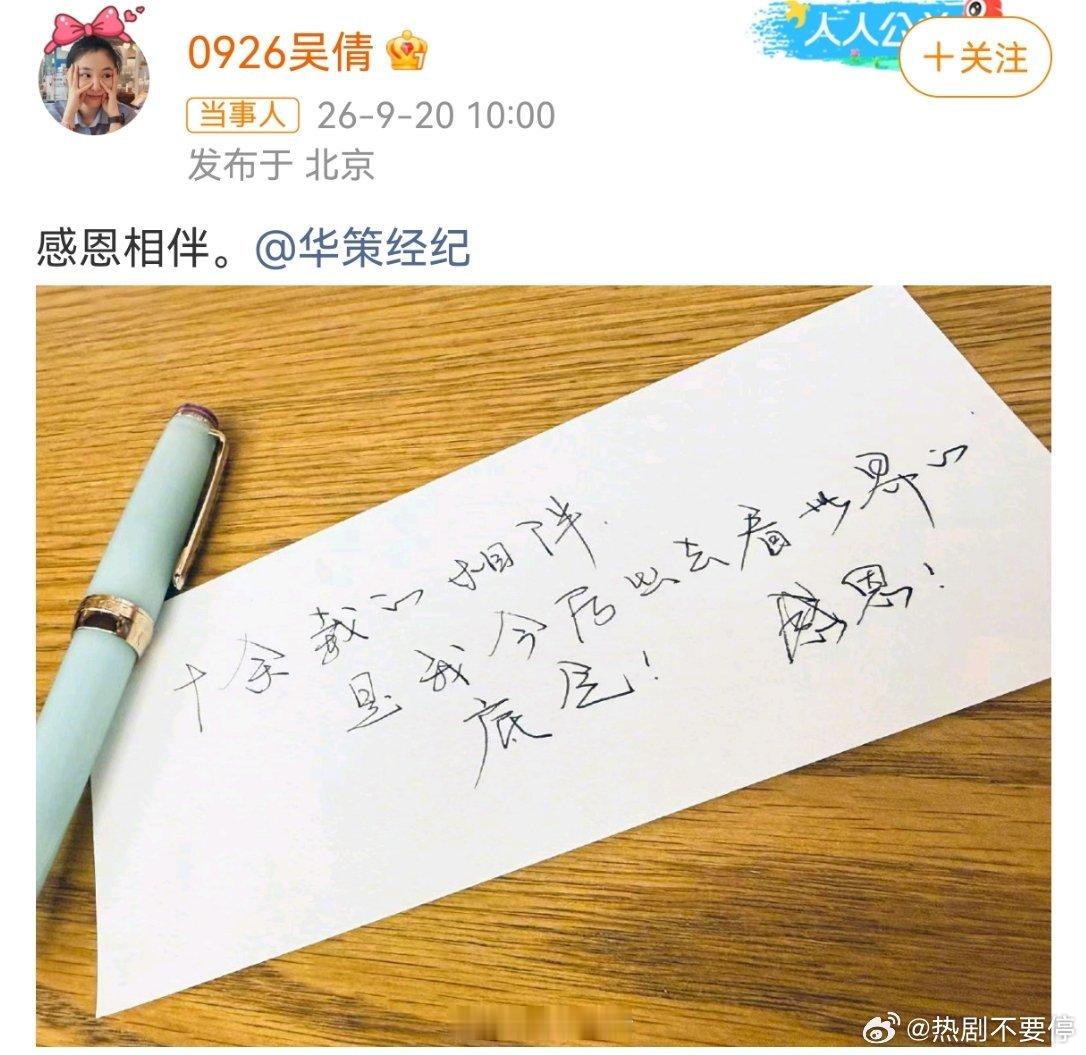 人人公益
0926吴倩
+关注
当事人 26-9-20 10:00
发布于 北京
感恩相伴。@华策经纪
十余载的相伴
是我今后出去看世界的
底气!
感恩!
@热剧不要停